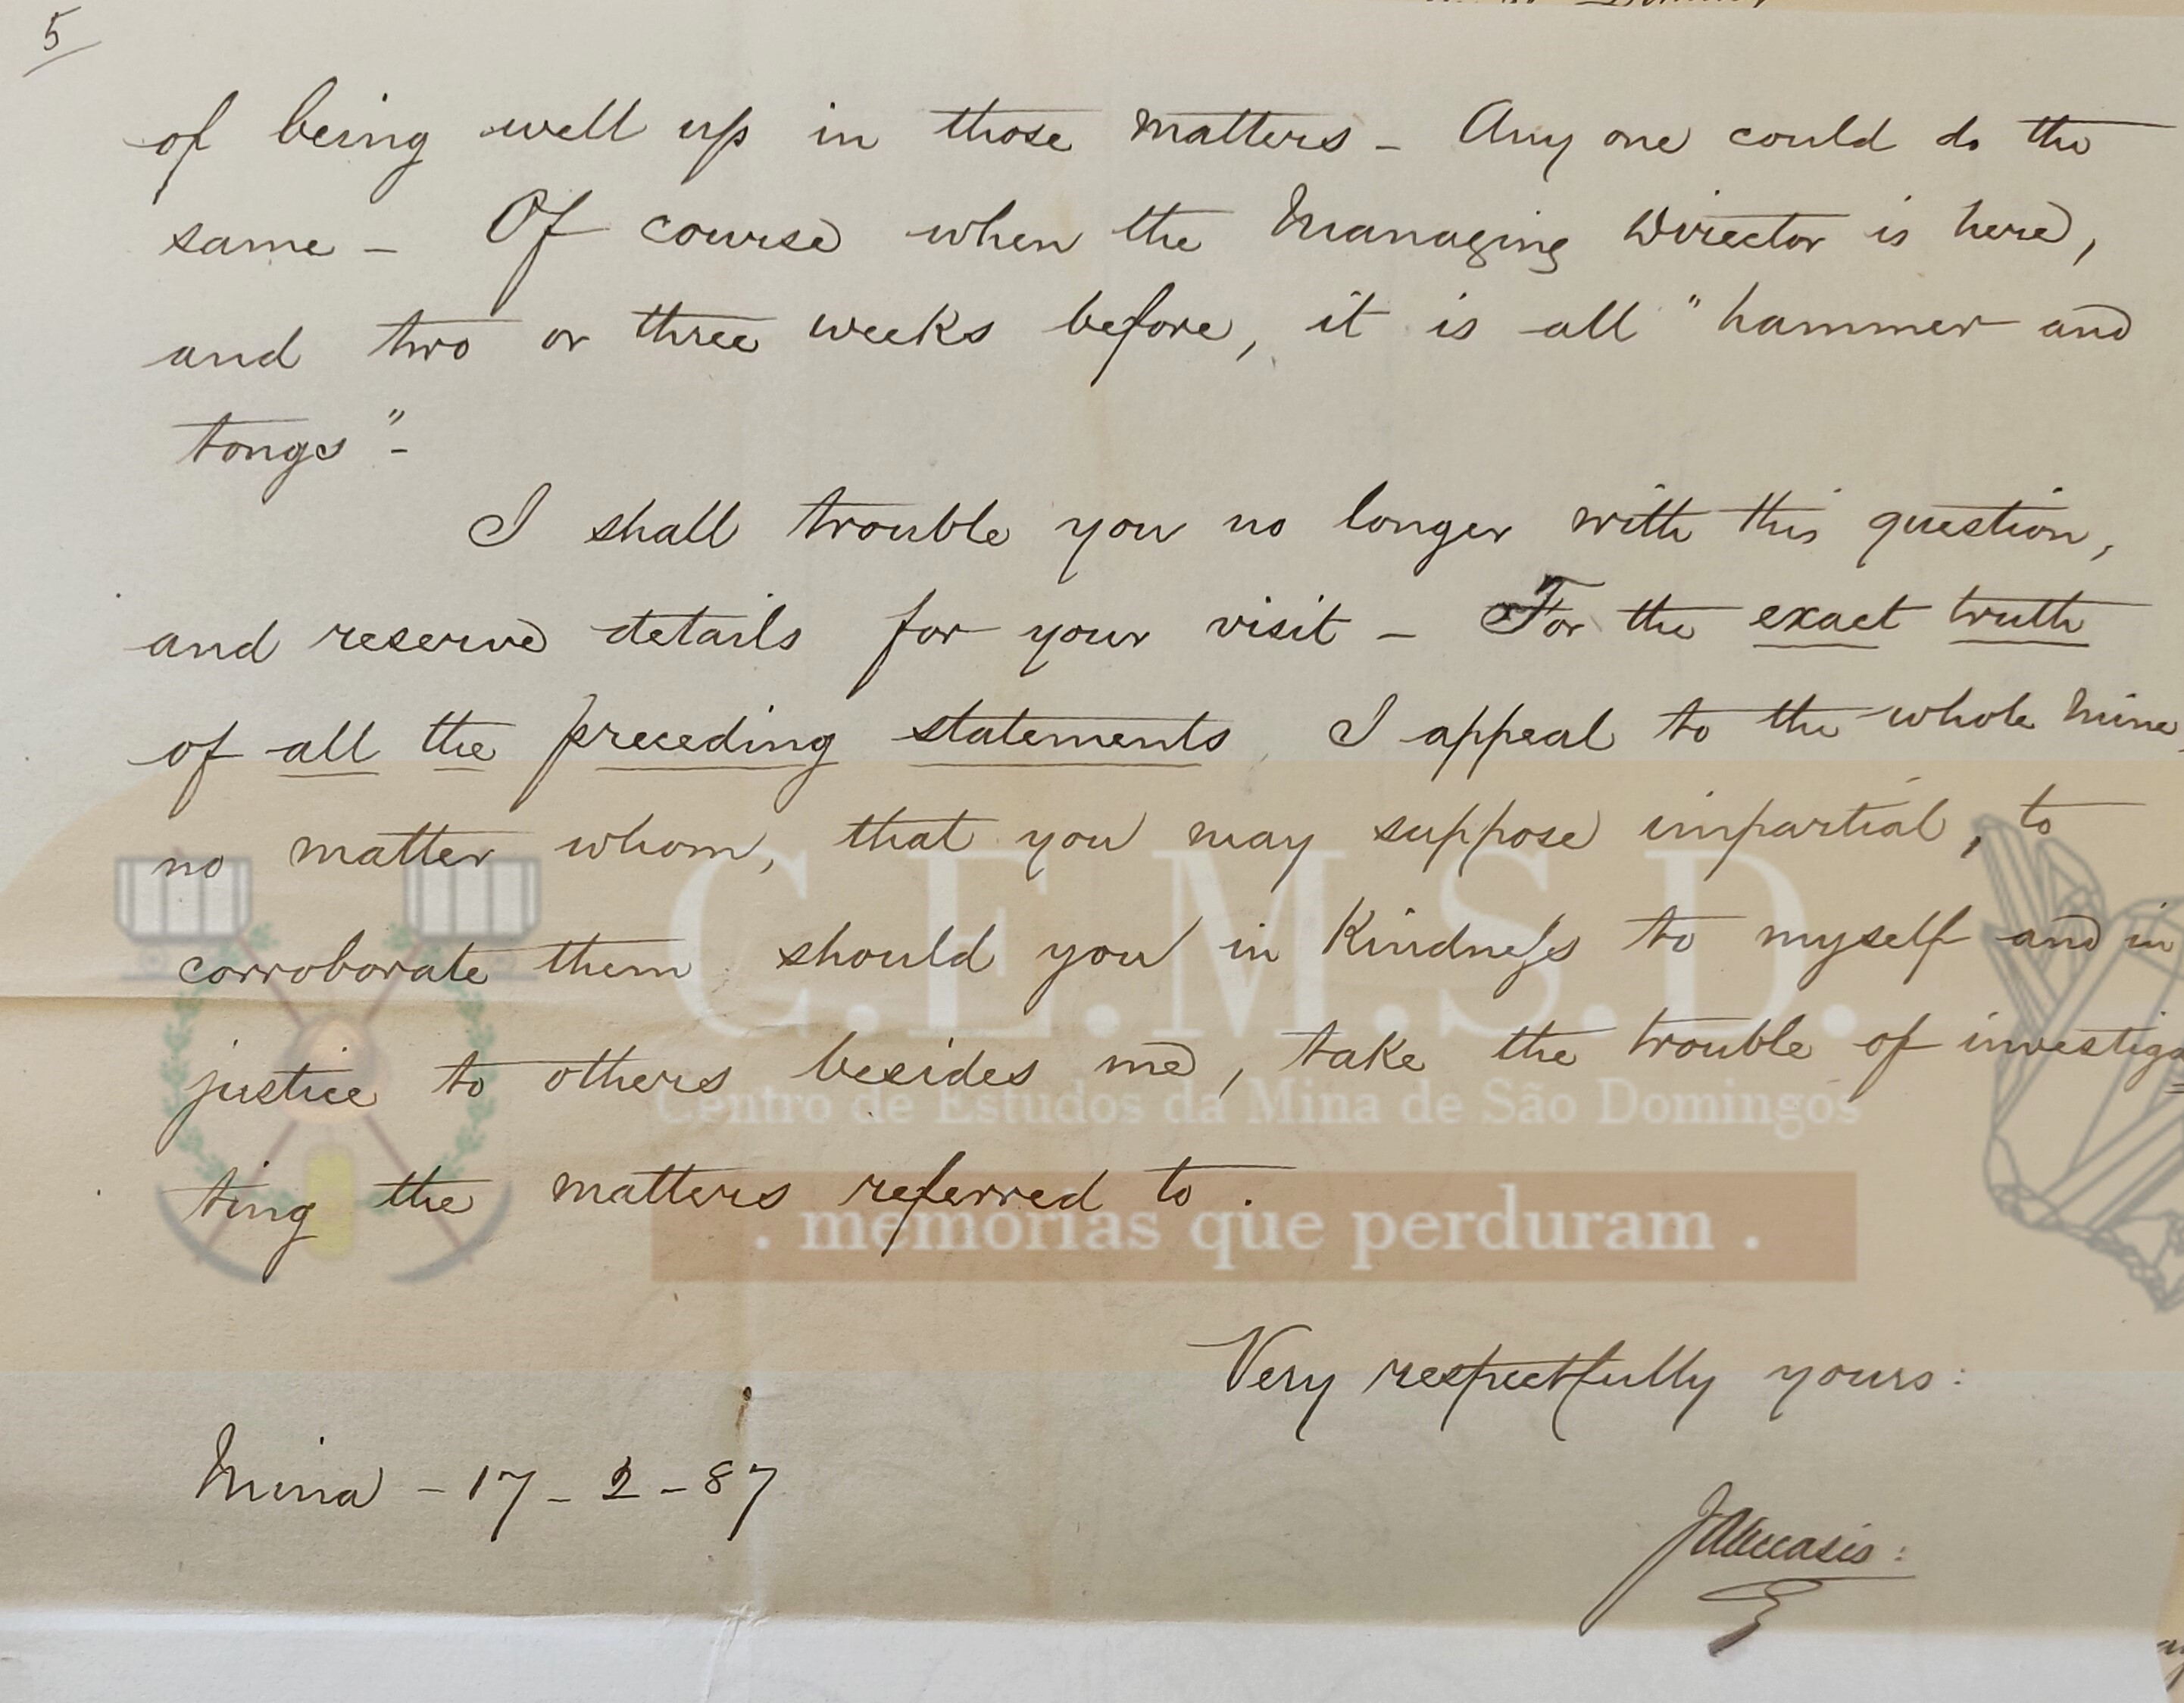 5
of being well up in those matters - Any one could do the
same - Of course when the Managing Director is here,
and two or three weeks before, it is all "hammer and
tongs" -
I shall trouble you no longer with this question,
and reserve details for your visit - For the exact truth
of all the preceding statements, I appeal to the whole Mine,
no matter whom, that you may suppose impartial, to
corroborate them should you in kindness to myself and in
justice to others besides me, take the trouble of investiga
ting the matters referred to.
Very respectfully yours:
Mina - 17 - 2 - 87
C.E.M.S.D.
Centro de Estudos da Mina de São Domingos
. memorias que perduram .